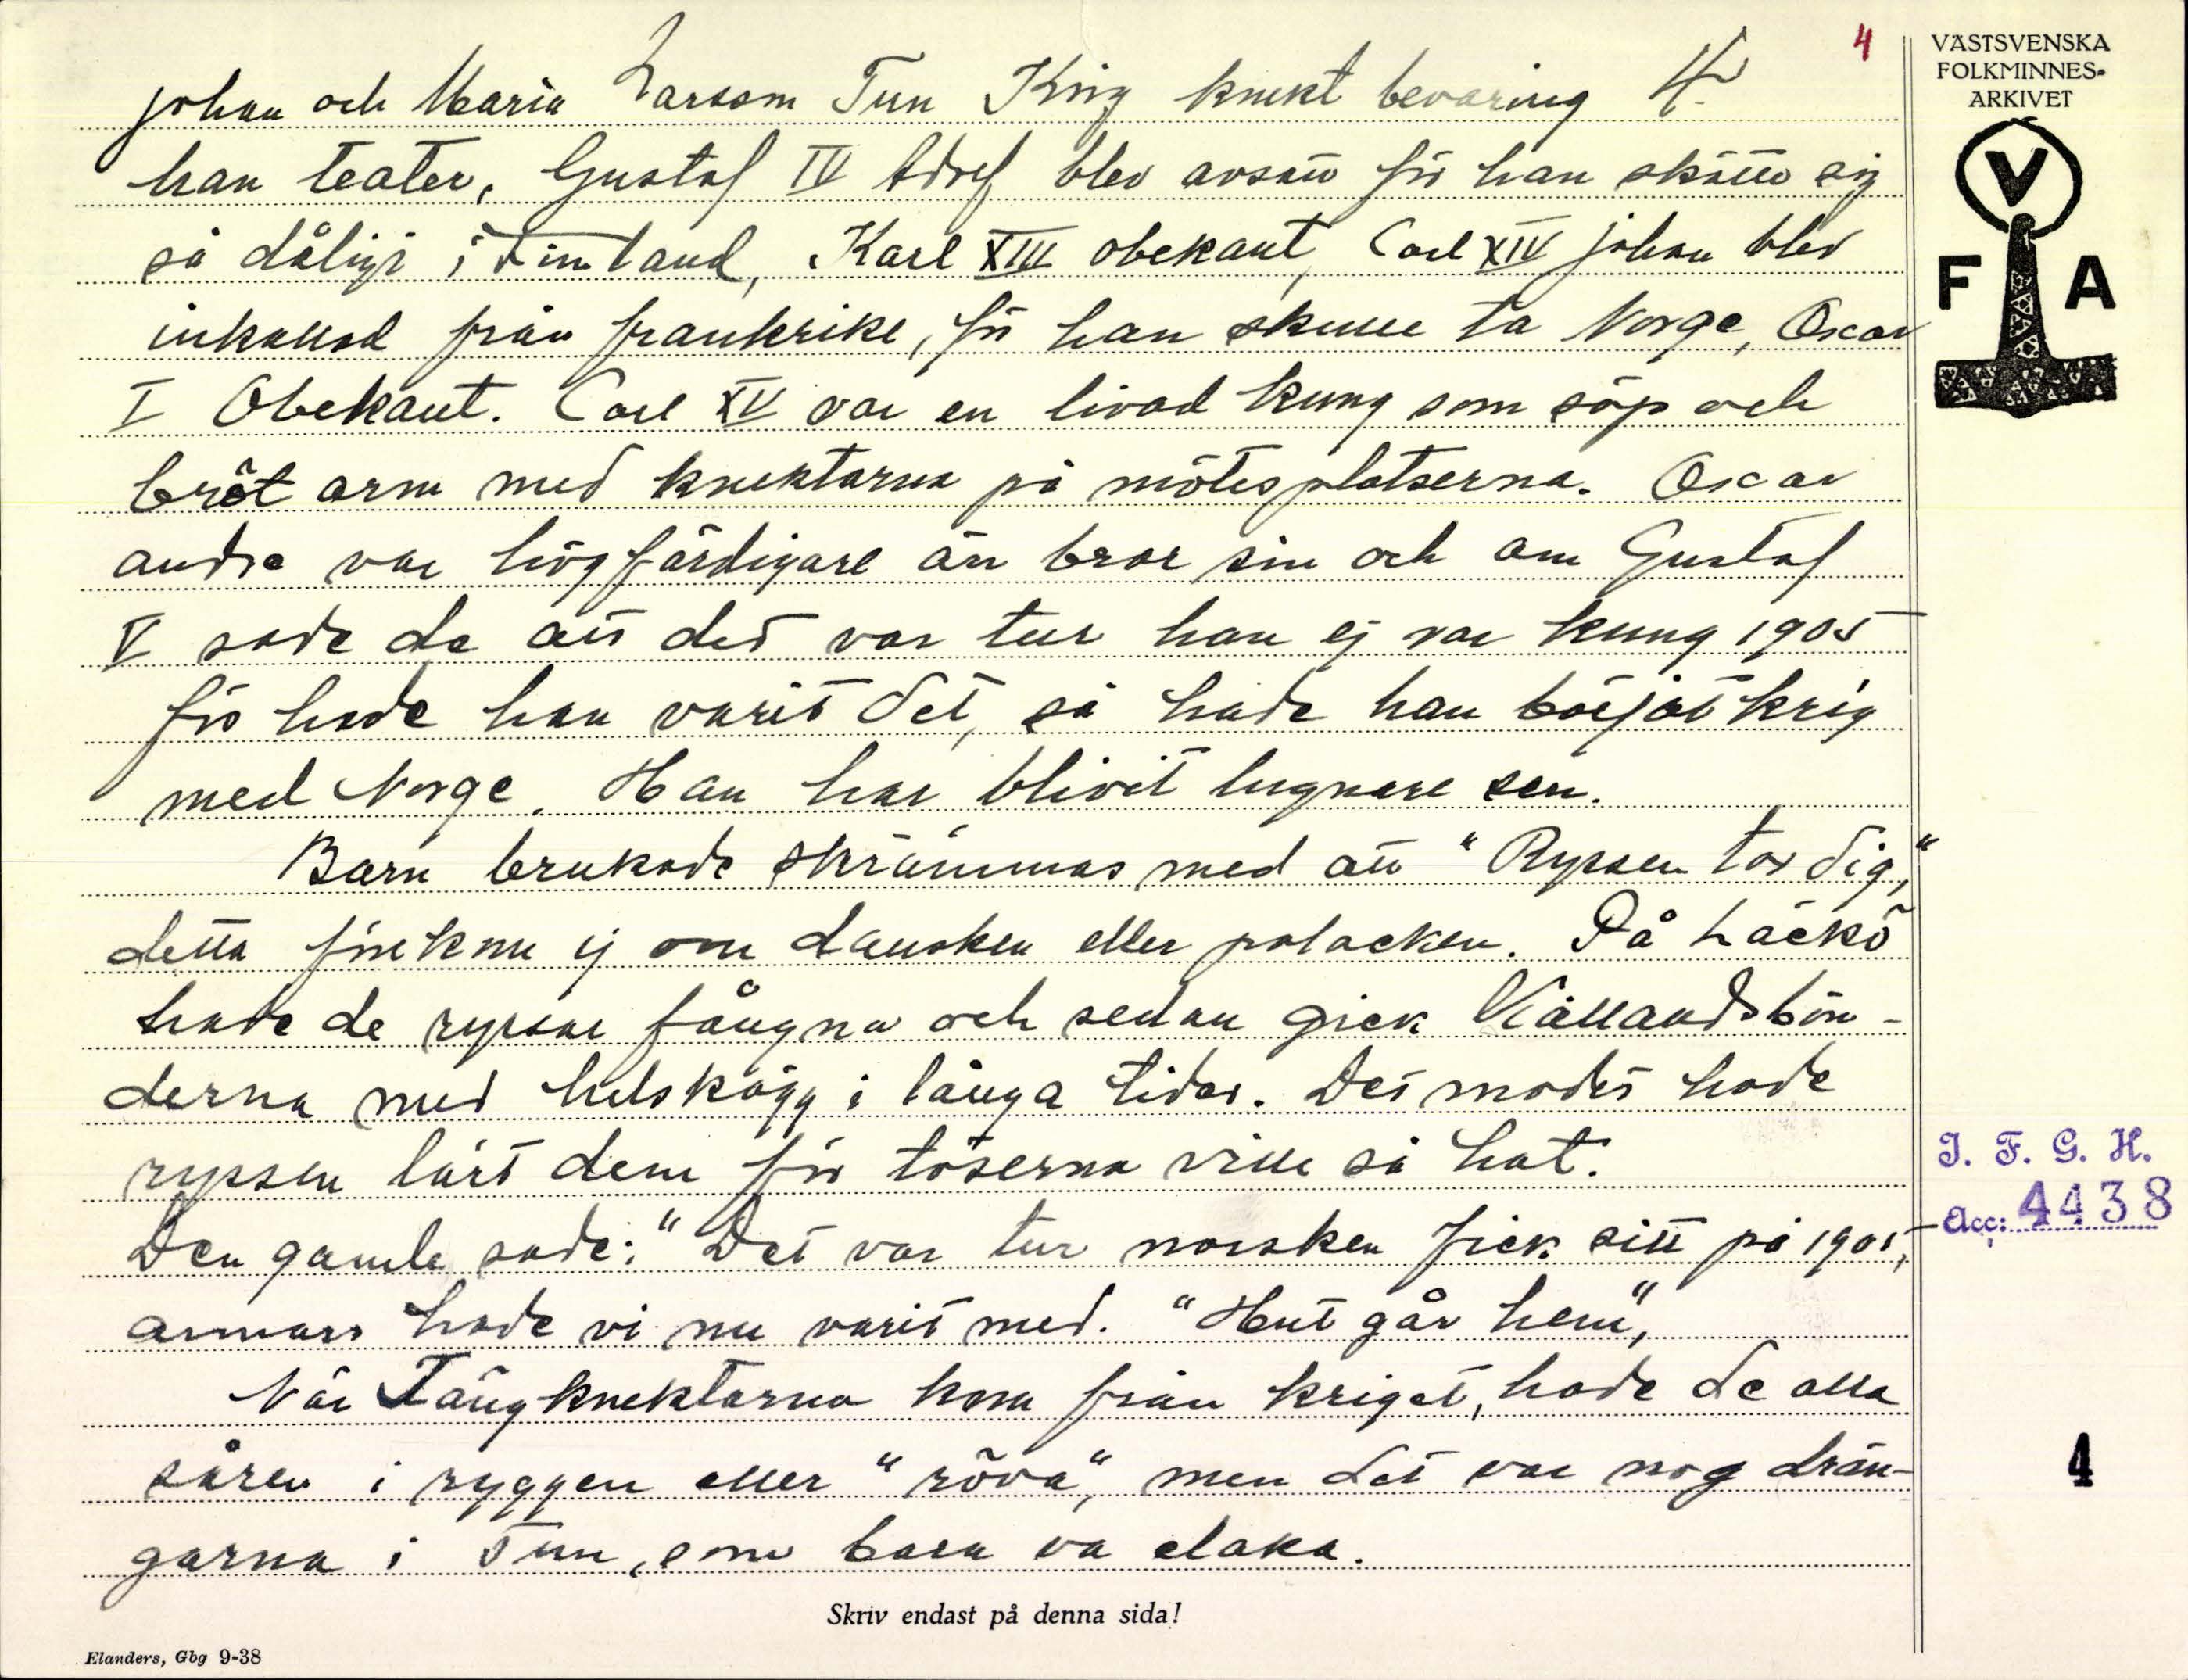 4
VÄSTSVENSKA
FOLKMINNES-
ARKIVET
V
F A
Johan och Maria Larsson Tun Krig knekt bevaring 4
han teater, Gustaf IV Adolf blev avsatt för han skötte sig
så dåligt i Finland, Karl XIII obekant, Carl XIV Johan blev
inkallad från frankrike, för han skulle ta Norge, Oscar
I Obekant. Carl XV var en livad kung som söp och
bröt arm med knektarna på mötesplatserna. Oscar
andre var högfärdigare än bror sin och om Gustaf
V sade de att det var tur han ej var kung 1905
för hade han varit det, så hade han börjat krig
med Norge. Han har blivit lugnare sen.
Barn brukade skrämmas med att "Ryssen tar dig,"
detta förekom ej om dansken eller polacken. På Läckö
hade de ryssar fångna och sedan gick Kållandsbön-
derna med helskägg i långa tider. Det modet hade
ryssen lärt dem för töserna ville så hat.
Den gamle sade: "Det var tur norsken fick sitt på 1905,
annars hade vi nu varit med. "Hut går hem",
När Tångknektarna kom från kriget, hade de alla
såren i ryggen eller "röva", men det var nog drän-
garna i Tun, som bara va elaka.
I. F. G. H.
Acc: 4438
4
Skriv endast på denna sida!
Elanders, Gbg 9-38